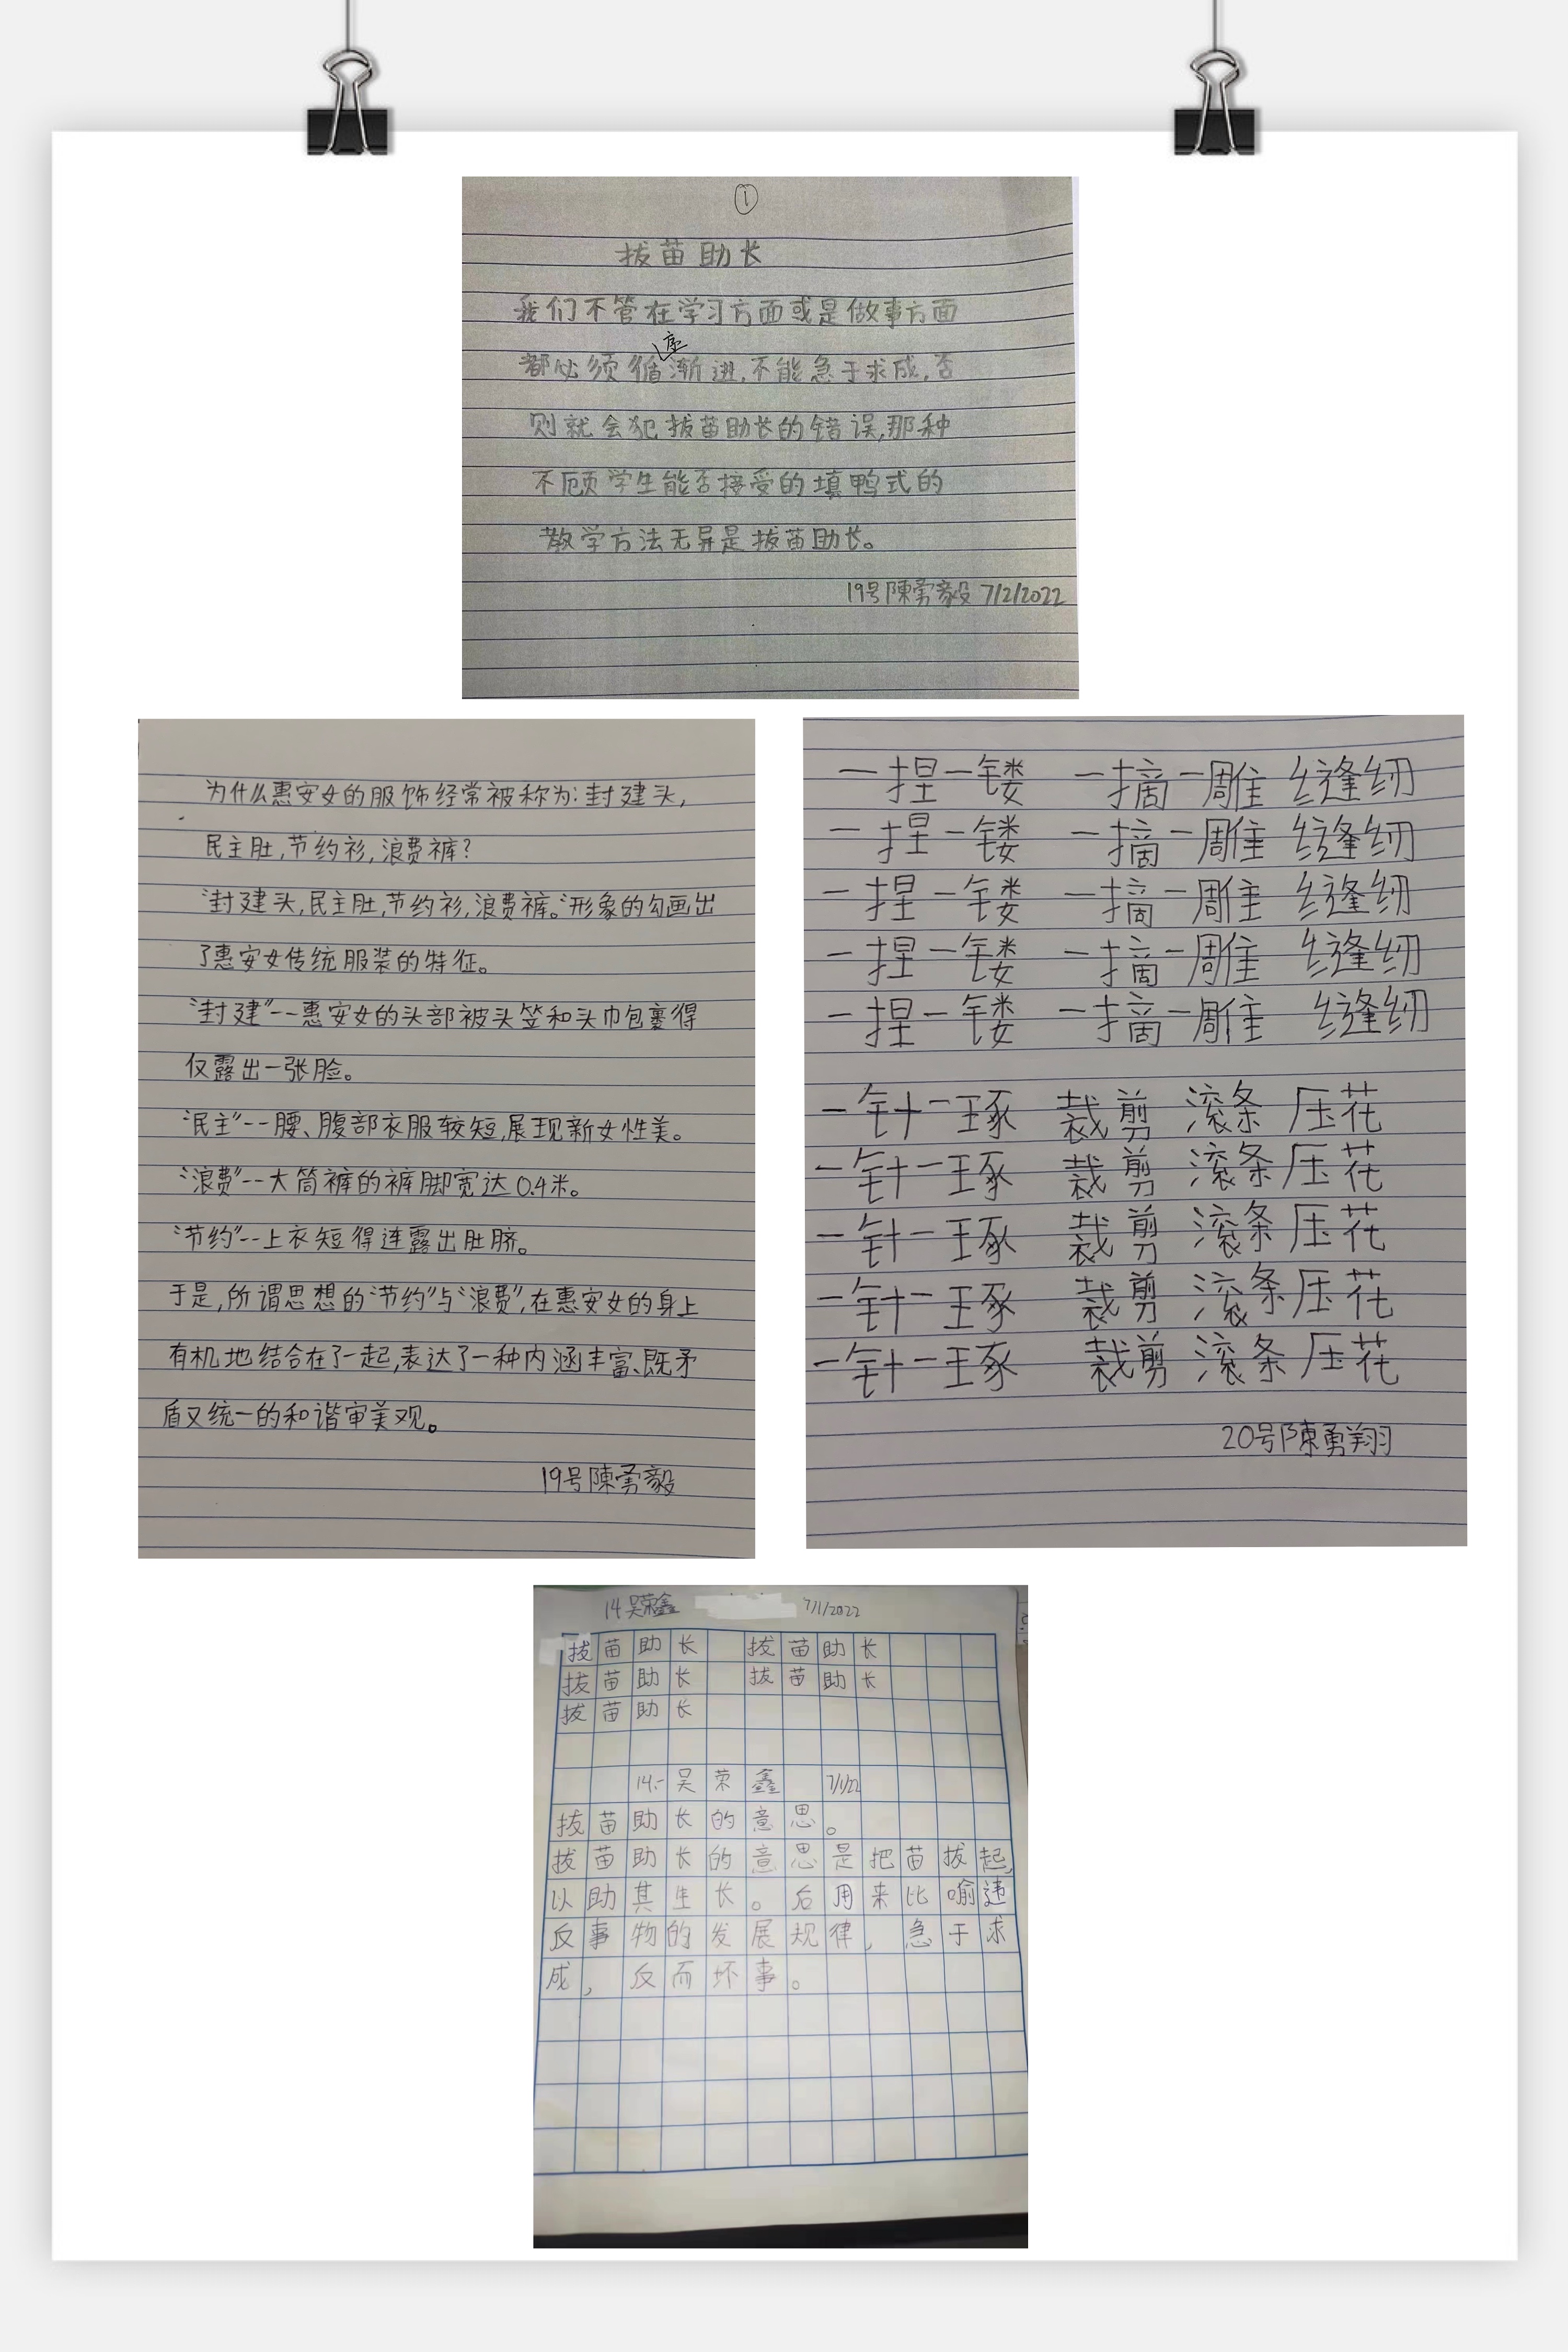 ①
拔苗助长
我们不管在学习方面或是做事方面
都必须循序渐进,不能急于求成,否
则就会犯拔苗助长的错误,那种
不顾学生能否接受的填鸭式的
教学方法无异是拔苗助长。
19号陳勇毅 7/2/2022
为什么惠安女的服饰经常被称为:封建头,
民主肚,节约衫,浪费裤?
“封建头,民主肚,节约衫,浪费裤。”形象的勾画出
了惠安女传统服装的特征。
“封建”--惠安女的头部被头笠和头巾包裹得
仅露出一张脸。
“民主”--腰、腹部衣服较短,展现新女性美。
“浪费”--大筒裤的裤脚宽达0.4米。
“节约”--上衣短得连露出肚脐。
于是,所谓思想的“节约”与“浪费”,在惠安女的身上
有机地结合在了一起,表达了一种内涵丰富、既矛
盾又统一的和谐审美观。
19号陳勇毅
一捏一镂 一摘一雕 缝纫
一捏一镂 一摘一雕 缝纫
一捏一镂 一摘一雕 缝纫
一捏一镂 一摘一雕 缝纫
一捏一镂 一摘一雕 缝纫
一针一琢 裁剪 滚条 压花
一针一琢 裁剪 滚条 压花
一针一琢 裁剪 滚条 压花
一针一琢 裁剪 滚条 压花
一针一琢 裁剪 滚条 压花
20号陳勇翔
14吴荣鑫 7/1/2022
拔苗助长 拔苗助长
拔苗助长 拔苗助长
拔苗助长
14.- 吴荣鑫 7/1/22
拔苗助长的意思。
拔苗助长的意思是把苗拔起,
以助其生长。后用来比喻违
反事物的发展规律,急于求
成,反而坏事。